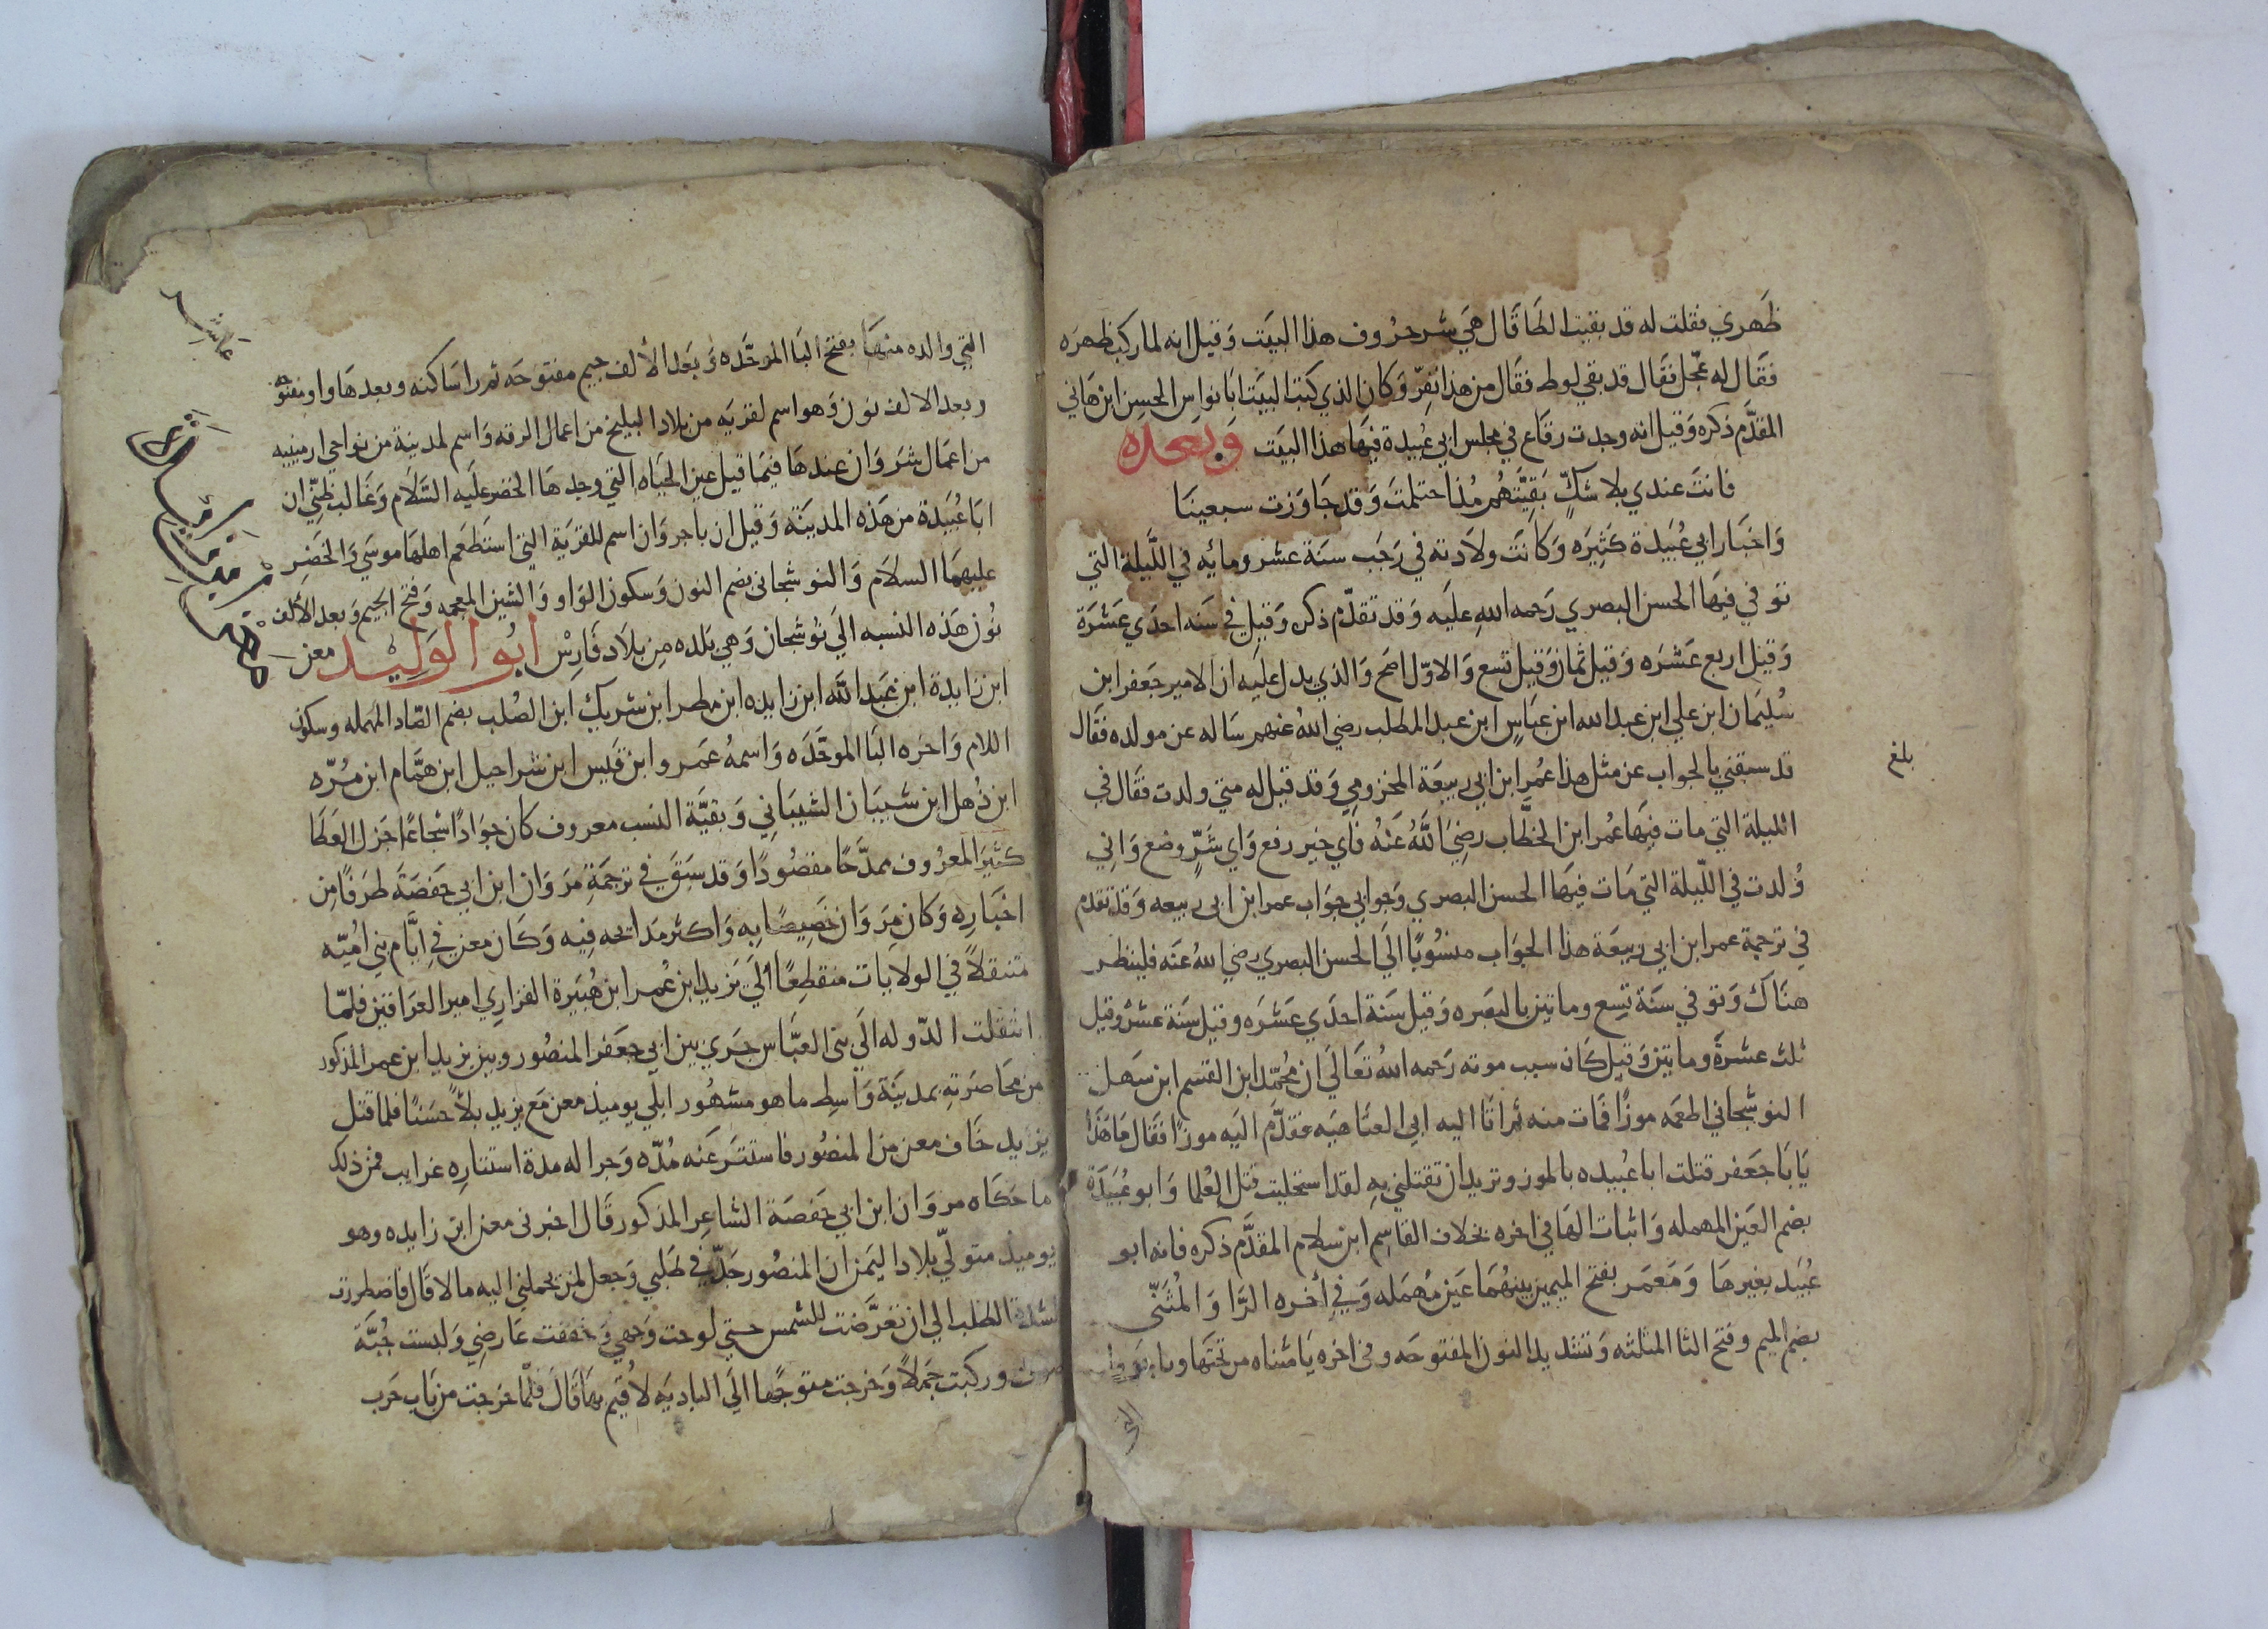 ظَهري فقلت له قد بقيت الطَا قَال هَي شر حرُوف هذا البيَت وَقيل انه لما ركب ظهرَه
فقَال له عجّل فقَال قد بقي لوط فقَال من هذا نفِرّ وَكان الذي كتب البيَت ابَا نواسِ الحسِن ابن هَاني
المقدَّم ذكره وَقيل انه وجدت رقاع في مجلس ابي عبُيدة فيهَا هذا البيَت وَبعده
فانتَ عندي بلا شكٍّ بَقِيَّتَهُم مُنذ احتلمتَ وَقد جَاوَزت سبعينَا
وَاخبَار ابي عُبَيدة كثِيرَه وَكانَت ولاَدته في رَجَب سنَة عشر ومائه في اللَّيلة التي
توفي فيهَا الحسن البصري رَحمه الله عليَه وَقد تقدّم ذكره وَقيل في سَنه احدَي عَشرَة
وَقيل اربع عَشرَه وَقيل ثمان وَقيل تسع وَالاوّل اصَح وَالذي يدل عليَه ان الامير جَعفر ابن
سُليَمان ابن علي ابن عبد الله ابن عبَاسٍ ابن عبد المطلب رضي اللهُ عنهم سَاله عن مولده فقَال
قد سبقني بالجواب عن مثل هذا عُمر ابن ابي ربيعَة المخزومِي وَقد قيل له متي ولدت فقَال في
الليلة التي مات فيهَا عُمر ابن الخطَّاب رضِيَ اللَّهُ عَنهُ فاي خير رفع وَاي شَرٍّ وضع وَاني
وُلدت في اللّيلة التي مَات فيهَا الحسن البصري وَجوابي جوَاب عمر ابن ابي ربيعه وَقد تقدم
في ترجمة عمر ابن ابي ربيعَة هذا الجوَاب منسُوبًا الَي الحسن البصري رضي اللهُ عنَه فلينظر
هنَاك وَتوفي سنَة تِسِع وماتين بالبصَره وَقيل سَنَة احدَي عَشرَه وقيل سَنَة عشر وقيل
ثلث عشرةَ وماتين وَقيل كَان سبب موته رَحمه اللهُ تعَالَي ان مُحمّد ابن القسم ابن سَهل
النوشجاني اطعمَه موزًا فمَات منه ثم اتَا اليه ابي العتَاهيَه فقدَّم اليَه موزًا فقَال مَا هَذا
يَا بَا جَعفر قتلت ابا عُبيده بالموز وتريد ان تقتلني بهِ لقد استحليت قتل العُلما وَابو عُبَيَدَة
بضم العَين المهمله وَاثبات الهَا في اخره بخلاف القاسِم ابن سَلام المقدَّم ذكره فانه ابو
عُبيَد بغيرهَا وَمَعمَر بفتح الميمين بينهُمَا عَين مُهمَله وَفي أخره الرَّا وَالمُثَنّي
بضم الميم وفتح الثا المثلثه وَتشديد النون المفتوحَه وفي اخره يَا مثناه من تحتهَا
التي
بلغ
التي والده منهَا بفتح البَا الموحَّده وَبعَد الألف جيم مفتوحَه ثم را سَاكنه وبعدهَا واو مفتوحه
وبعد الالف نون وَهو اسم لقريَه من بلاد البليخ من اعمال الرقه وَاسم لمدينة من نواحي ارمينيه
من اعمَال شرَوَان عندهَا فيمَا قيل عين الحيَاه التي وجدهَا الخضر عليَه السَّلام وَغالب ظنّي ان
ابَا عُبيَدة من هَذه المدينَة وَقيل ان باجروَان اسم للقريَة التي استَطعَم اهلهَا موسَي وَالخضر
عليهمَا السلاَم وَالنوشجاني بضم النون وَسكون الوَاو وَالشين المعجمه وَفتح الجيم وَبعد الألف
نُون هَذه النسبه الَي نوشجان وَهي بَلده مِن بلاَد فَارِسْ ابُو الوَليْد معن
ابن زايدة ابن عبَد اللّه ابن زايده ابن مطر ابن شريك ابن الصُلب بضم الصّاد المهمله وسكون
اللام وَاخره البَا الموحَّدَه وَاسمهُ عمَرو ابن قَيس ابن شراحيل ابن همَّام ابن مُرّه
ابن ذُهل ابن شيبَان الشيبَاني وَبقيَّة النسب معروف كان جوَادًا شجاعًا جَزل العَطَا
كثيَر المعرُوف ممدّحًا مقصُودًا وَقد سبَق في ترجمَة مرَوَان ابن ابي حَفصَة طرَفًا مِن
اخبَارِه وَكان مَروَان خَصِيصًا بِه وَاكثر مدَايحه فيه وَكَان معن في ايَّام بني اميّه
متنقلاً في الولايات منقطِعًا الَي يَزيد ابن عُمر ابن هُبَيرة الفزاري امير العرَاقين فلمّا
انتقلت الدّوله الَي بني العبَّاس جَري بين ابي جعَفر المنصُور وبين يزيد ابن عمر المذكور
من محَاصَرتهِ بمدينَة وَاسِط ما هو مشهُور ابلي يوميذ معن مَع يزيد بلاً حسَنًا فلما قتل
يزيد خَاف معن من المنصُور فاستتَر عَنه مُدّه وَجرا له مدة استتاره غرايب فمن ذلك
ما حكَاه مروَان ابن ابي حَفصَة الشاعِر المذكور قَال اخبرني معن ابن زايده وهو
يوميذ متولّي بلاد اليَمن ان المنصُور جَدّ في طَلبي وَجعل لمن يحملني اليه مالا قَال فاضطررت
لشدة الطلب الي ان تعَرَّضَت للشمس حتي لوحت وَجهي وَخففت عَارضِي وَلبست جُبَّة
صوف وركبت جمَلاً وَخرجت متوجًها الَي الباديَه لاُقيم بهَا قَالَ فلّما خرَجت من بَاب حَرب